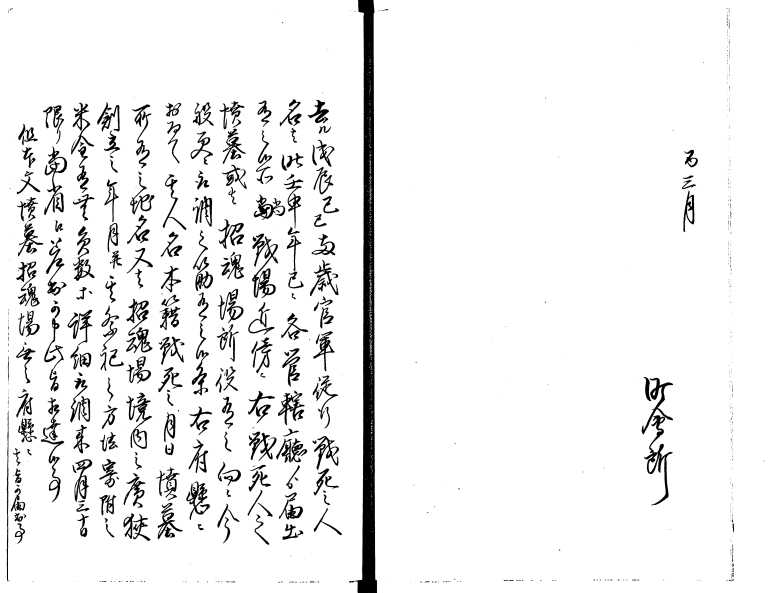 丙三月
町会所
去ル戊辰己巳両歳官軍従行戦死之人
名ハ昨壬申年已ニ各管轄庁ゟ届出
有之候処戦場近傍ニ右戦死人之
墳墓或ハ招魂場所設有之向ニ今
般更ニ取調之筋有之候条右府県ニ
おゐて其人名本籍戦死之月日墳墓
所有之地名又ハ招魂場境内之広狭
創立之年月并其祭祀之方法寄附之
米金有無員数等詳細取調来四月三十日
限り当省江差出可申此旨相達候事
但本文墳墓招魂場無之府県ニ
其旨可届出事